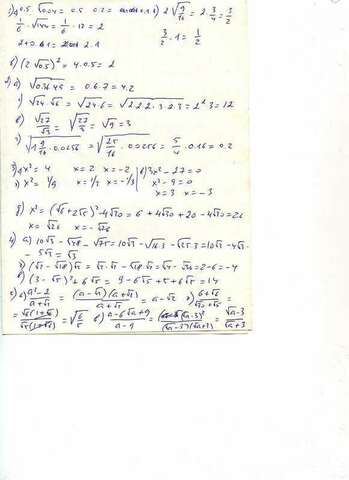 0.5·√0.04 = 0.5 · 0.2 =
2√9/16 = 2·3/4 = 3/2
1/6 · √144 = 1/6 · 12 = 2
3/2 · 1 = 1/2
в) (2√0.5)² = 4·0.5 = 2
2) а) √0.36·49 = 0.6·7 = 4.2
√24·√6 = √24·6 = √2·2·2·3·2·3 = 2²·3 = 12
в) √27/√3 = √27/3 = √9 = 3
√1 9/16 · 0.0256 = √25/16 · 0.0256 = 5/4 · 0.16 = 0.2
3) x² = 4 x = 2 x = -2 в) 3x² - 27 = 0
x² = 1/9 x = 1/3 x = -1/3 x² - 9 = 0
x = 3 x = -3
x² = (√6 + 2√5)² - 4√30 = 6 + 4√30 + 20 - 4√30 = 26
x = √26 x = -√26
4) а) 10√3 - √48 - √75 = 10√3 - √16·3 - √25·3 = 10√3 - 4√3 -
- 5√3 = √3
(√2 - √18)√2 = √2·√2 - √18·√2 = √4 - √36 = 2 - 6 = -4
(3 - √5)² + 6√5 = 9 - 6√5 + 5 + 6√5 = 14
5) а) a² - 2 / a + √2 = (a - √2)(a + √2) / a + √2 = a - √2
= √6/5
a - 6√a + 9 / a - 9 = (√a - 3)² / (√a - 3)(√a + 3) = √a - 3 / √a + 3